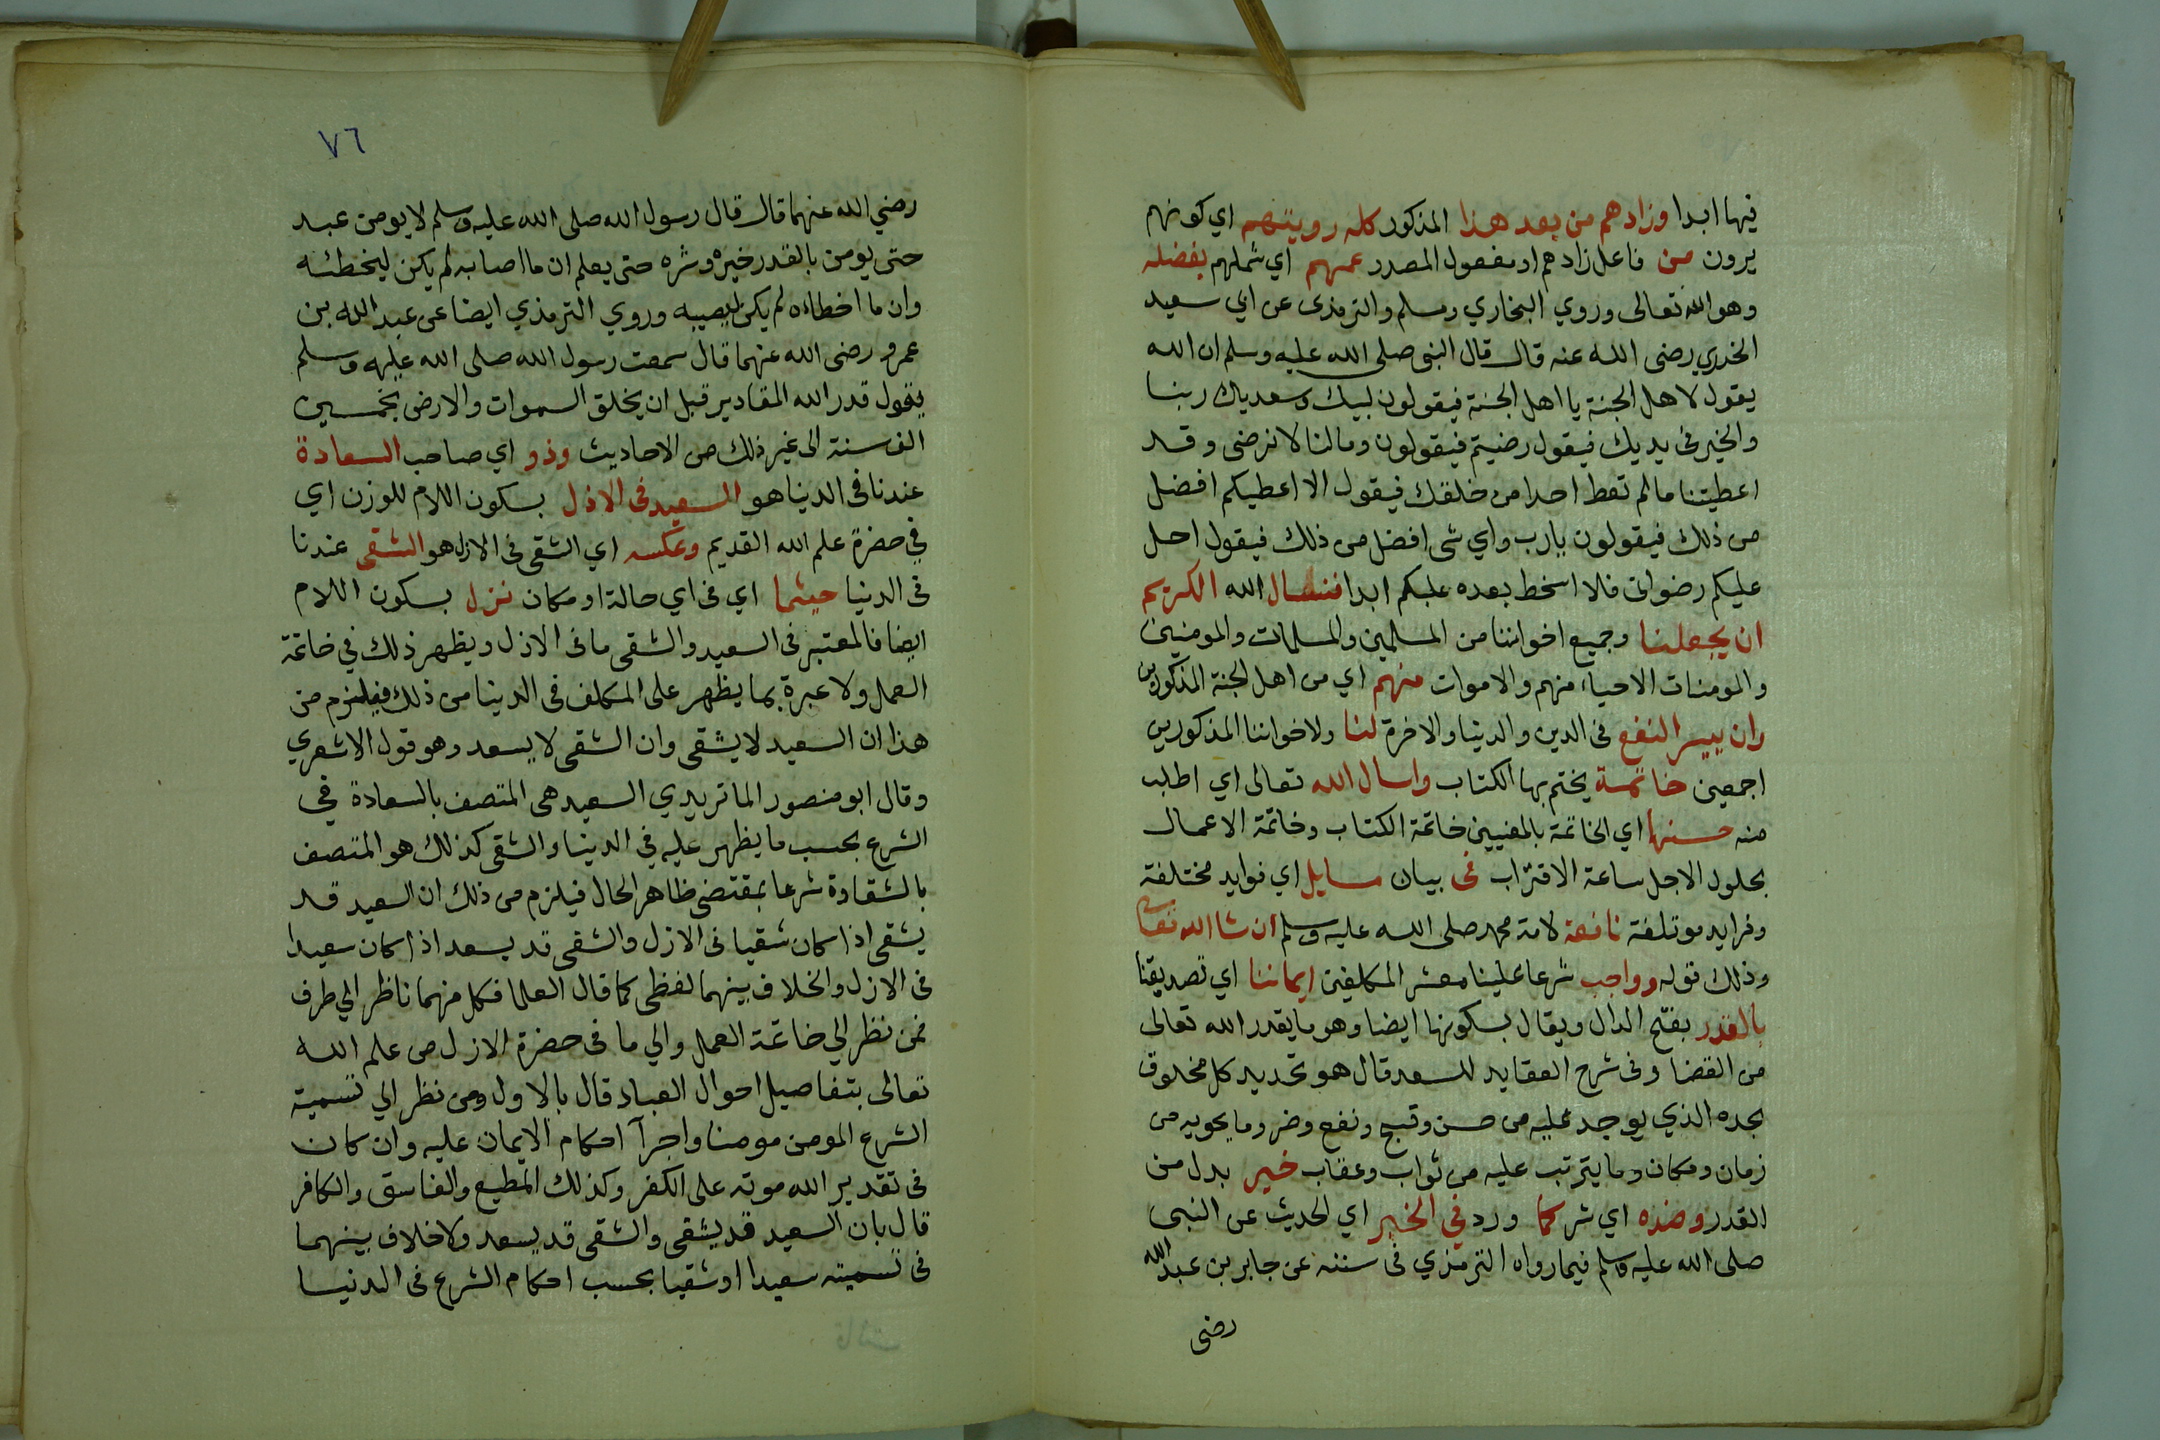 فيها ابدا وزادهم من بعد هذا المذكور كله رويتهم اي كونهم
يرون من فاعل زادهم او مفعول المصدر عمهم اي شملهم بفضله
وهو الله تعالى وروي البخاري ومسلم والترمذى عن ابي سعيد
الخدري رضى الله عنه قال قال النبى صلى الله عليه وسلم ان الله
يقول لاهل الجنة يا اهل الجنة فيقولون لبيك وسعديك ربنا
والخير فى يديك فيقول رضيتم فيقولون ومالنا لا نرضى وقد
اعطيتنا مالم تعط احدا من خلقك فيقول الا اعطيكم افضل
من ذلك فيقولون يارب واي شى افضل من ذلك فيقول احل
عليكم رضوانى فلا اسخط بعده عليكم ابدا فنسال الله الكريم
ان يجعلنا وجميع اخواننا من المسلمين والمسلمات والمومنين
والمومنات الاحياء منهم والاموات منهم اي من اهل الجنة المذكورين
وان ييسر النفع فى الدين والدنيا والاخرة لنا ولاخواننا المذكورين
اجمعين خاتمة يختم بها الكتاب واسال الله تعالى اي اطلب
منه حسنها اي الخاتمة بالمعنيين خاتمة الكتاب وخاتمة الاعمال
بحلول الاجل ساعة الاقتراب فى بيان مسايل اي فوايد مختلفة
وفرايد موتلفة نافعة لامة محمد صلى الله عليه وسلم ان شا الله تعالى
وذلك قوله وواجب شرعا علينا معشر المكلفين ايماننا اي تصديقنا
بالقدر بفتح الدال ويقال بسكونها ايضا وهو ما يقدر الله تعالى
من القضا وفى شرح العقايد للسعد قال هو تحديد كل مخلوق
بحده الذي يوجد عليه من حسن وقبح ونفع وضر وما يحويه من
زمان ومكان وما يترتب عليه من ثواب وعقاب خير بدل من
القدر وضده اي شر كما ورد في الخبر اي الحديث عن النبى
صلى الله عليه وسلم فيما رواه الترمذي فى سننه عن جابر بن عبد الله
رضى
٧٦
رضي الله عنهما قال قال رسول الله صلى الله عليه وسلم لا يومن عبد
حتى يومن بالقدر خيره وشره حتى يعلم ان ما اصابه لم يكن ليخطئه
وان ما اخطاه لم يكن ليصيبه وروي الترمذي ايضا عن عبد الله بن
عمرو رضى الله عنهما قال سمعت رسول الله صلى الله عليه وسلم
يقول قدر الله المقادير قبل ان يخلق السموات والارض بخمسين
الف سنة الى غير ذلك من الاحاديث وذو اي صاحب السعادة
عندنا فى الدنيا هو السعيد فى الازل بسكون اللام للوزن اي
في حضرة علم الله القديم وعكسه اي الشقى فى الازل هو الشقى عندنا
فى الدنيا حيثما اي فى اي حالة او مكان نزل بسكون اللام
ايضا فالمعتبر فى السعيد والشقى ما فى الازل ويظهر ذلك في خاتمة
العمل ولا عبرة بما يظهر على المكلف فى الدينا من ذلك فيلزم من
هذا ان السعيد لا يشقى وان الشقى لا يسعد وهو قول الاشعري
وقال ابو منصور الماتريدي السعيد هى المتصف بالسعادة فى
الشرع بحسب ما يظهر عليه في الدينا والشقى كذلك هو المتصف
بالشقاوة شرعا بمقتضى ظاهر الحال فيلزم من ذلك ان السعيد قد
يشقى اذا كان شقيا فى الازل والشقى قد يسعد اذا كان سعيدا
فى الازل والخلاف بينهما لفظى كما قال العلما فكل منهما ناظر الي طرف
فمن نظر الي خاتمة العمل والي ما فى حضرة الازل من علم الله
تعالى بتفاصيل احوال العباد قال بالاول ومن نظر الي تسمية
الشرع المومن مومنا واجرآ احكام الايمان عليه وان كان
فى تقدير الله موته على الكفر وكذلك المطيع والفاسق والكافر
قال بان السعيد قد يشقى والشقى قد يسعد ولا خلاف بينهما
فى تسميته سعيدا او شقيا بحسب احكام الشرع فى الدنيا